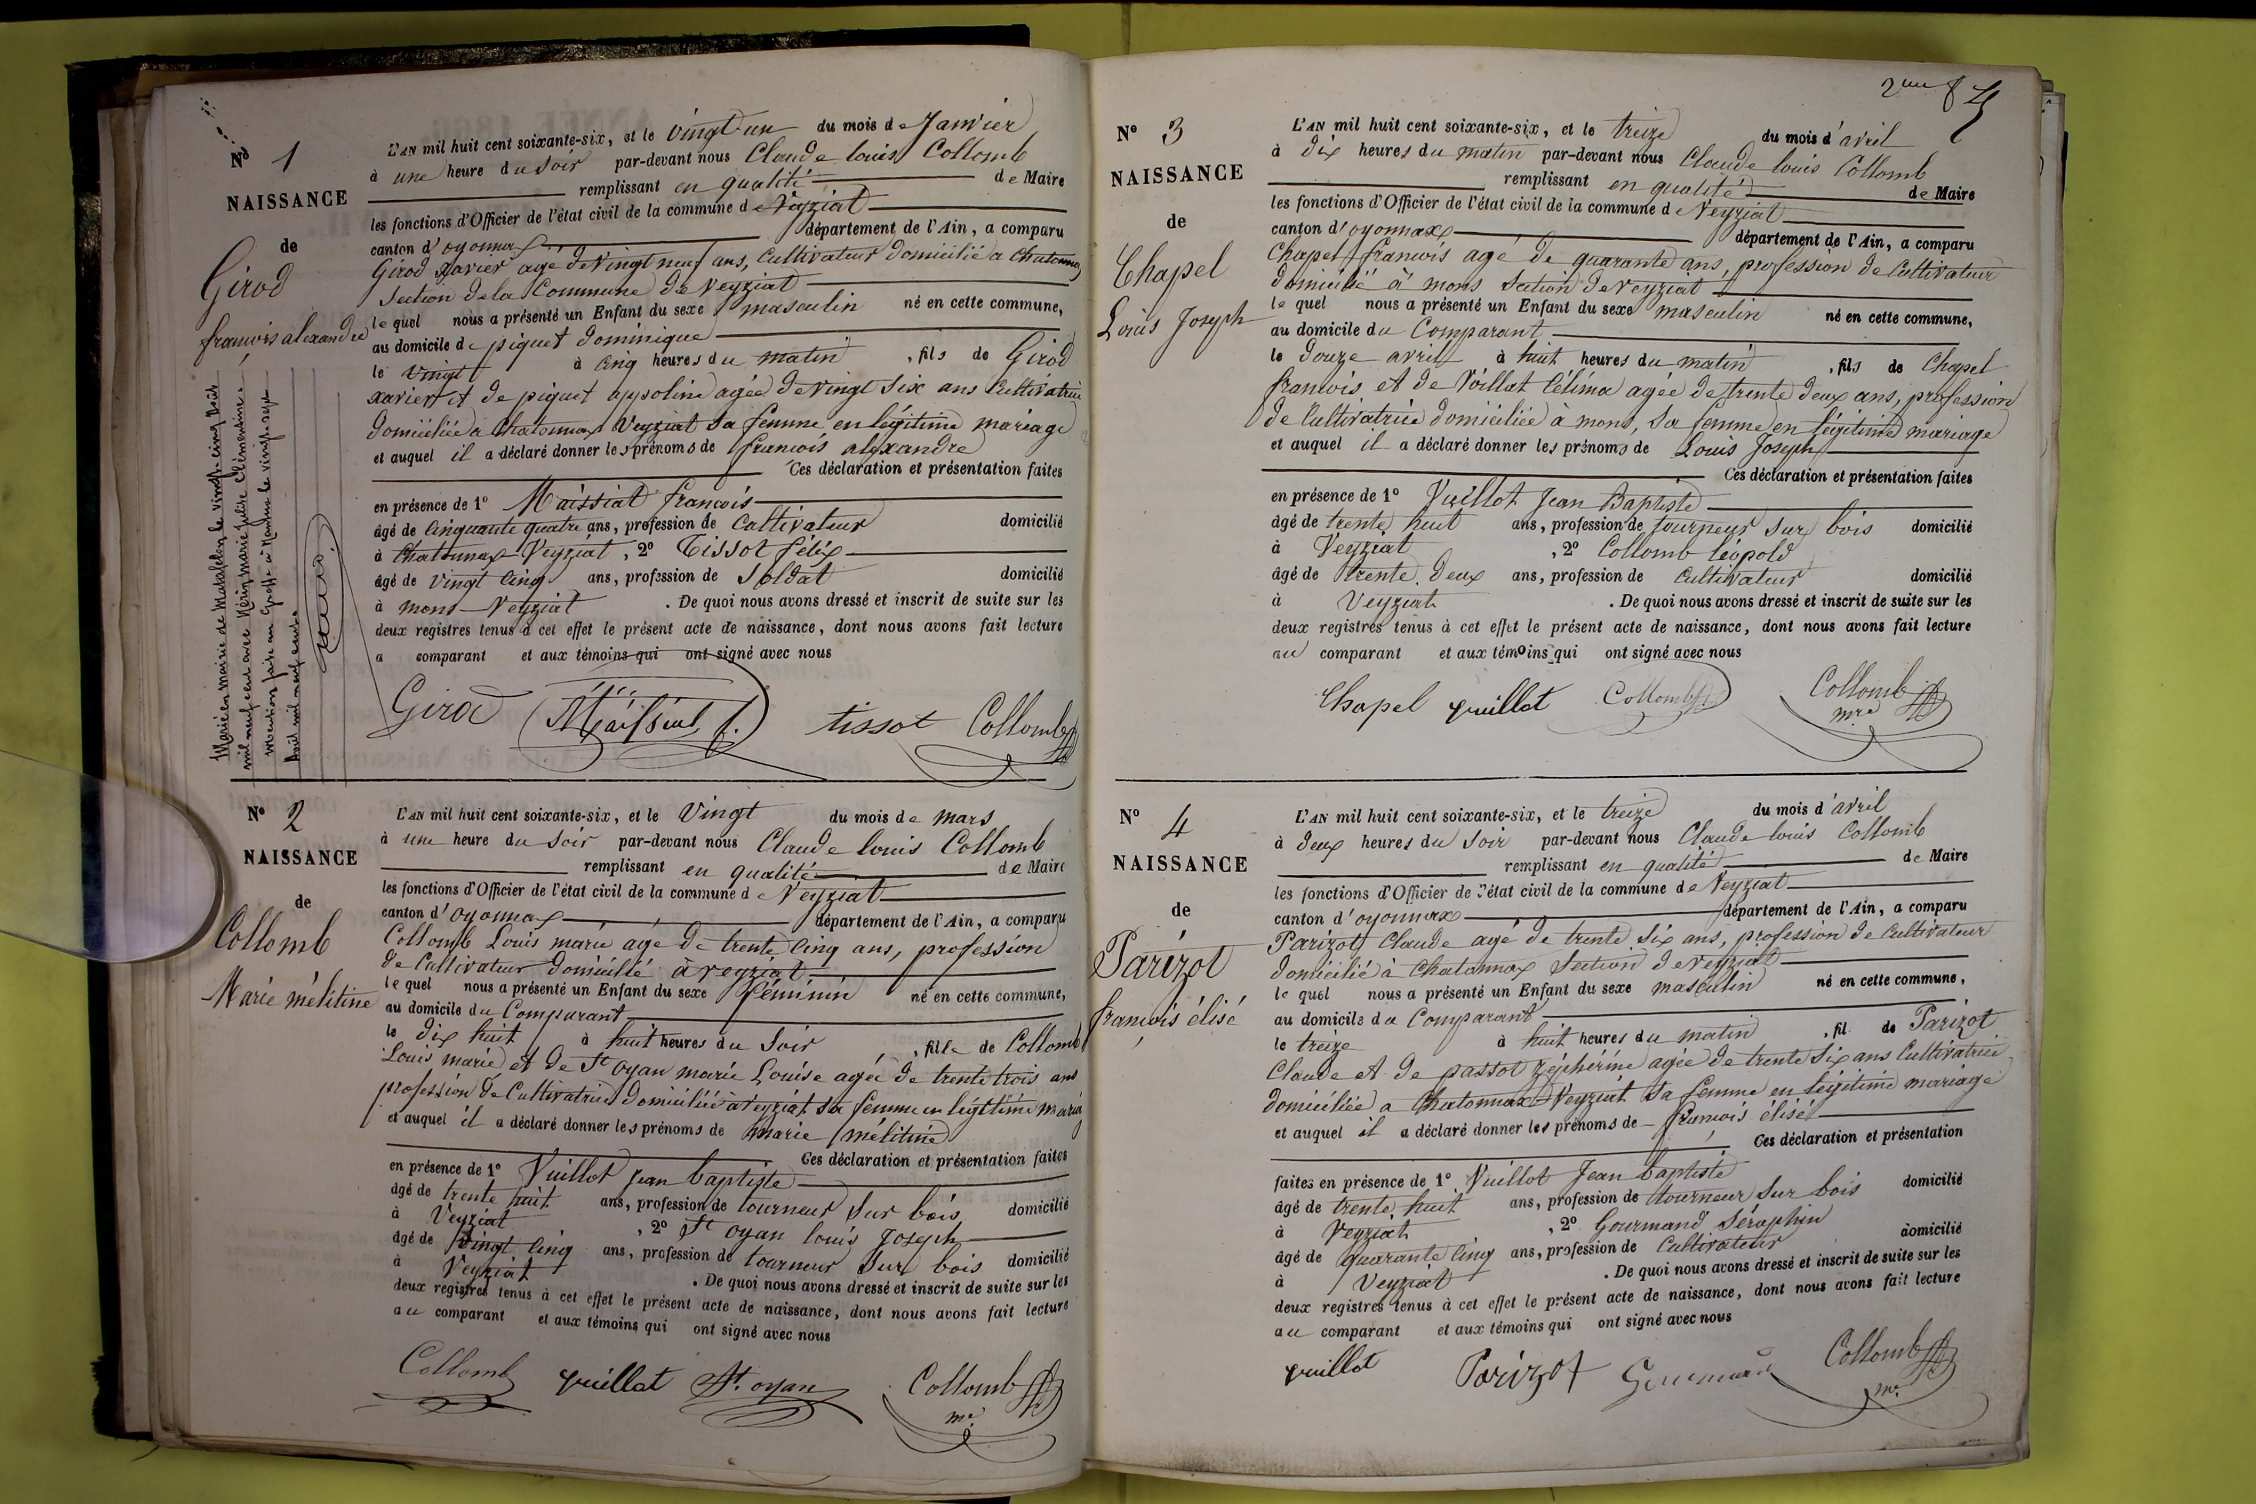 Nº 1
NAISSANCE
de
Girod
françois alexandre
Marié en mairie de le vingt cinq Août
mil neuf cent avec marie Julie Clémentine.
mention faite au Greffe à Nantua le vingt sept
Août mil neuf cent.
L'AN mil huit cent soixante-six, et le vingt un du mois de Janvier
à une heure du soir par-devant nous Claude louis Collomb
remplissant en qualité de Maire
les fonctions d'Officier de l'état civil de la commune de Veyziat
canton d'oyonnax département de l'Ain, a comparu
Girod Xavier agé de vingt neuf ans, Cultivateur domicilié a Chatonnax
Section de la Commune de Veyziat
lequel nous a présenté un Enfant du sexe masculin né en cette commune,
au domicile de piquet dominique
le vingt à cinq heures du matin, fils de Girod
xavier et de piquet appoline agée de vingt six ans Cultivatrice
domiciliée a Chatonnax Veyziat sa femme en légitime mariage
et auquel il a déclaré donner les prénoms de françois alexandre
Ces déclaration et présentation faites
en présence de 1º Maissiat françois
âgé de Cinquante quatre ans, profession de Cultivateur domicilié
à Chatonnax Veyziat, 2º Tissot félix
âgé de vingt cinq ans, profession de Soldat domicilié
à mons Veyziat. De quoi nous avons dressé et inscrit de suite sur les
deux registres tenus à cet effet le présent acte de naissance, dont nous avons fait lecture
a comparant et aux témoins qui ont signé avec nous
Girod Maissiat f. tissot Collomb
Nº 2
NAISSANCE
de
Collomb
Marie mélitine
L'AN mil huit cent soixante-six, et le Vingt du mois de mars
à une heure du soir par-devant nous Claude louis Collomb
remplissant en qualité de Maire
les fonctions d'Officier de l'état civil de la commune de Veyziat
canton d'oyonnax département de l'Ain, a comparu
Collomb Louis marie agé de trente cinq ans, profession
de Cultivateur domicilié à veyziat
lequel nous a présenté un Enfant du sexe féminin né en cette commune,
au domicile du Comparant
le dix huit à huit heures du Soir, fille de Collomb
Louis marie et de St oyan marie Louise agée de trente trois ans
profession de Cultivatrice domiciliée a veyziat sa femme en légitime mariag
et auquel il a déclaré donner les prénoms de marie mélitine
Ces déclaration et présentation faites
en présence de 1º Vuillot jean baptiste
âgé de trente huit ans, profession de tourneur sur bois domicilié
à Veyziat, 2º St oyan louis Joseph
âgé de vingt cinq ans, profession de tourneur sur bois domicilié
à Veyziat. De quoi nous avons dressé et inscrit de suite sur les
deux registres tenus à cet effet le présent acte de naissance, dont nous avons fait lecture
au comparant et aux témoins qui ont signé avec nous
Collomb vuillot St. oyan Collomb
me
Nº 3
NAISSANCE
de
Chapel
Louis Joseph
L'AN mil huit cent soixante-six, et le treize du mois d'avril
à dix heures du matin par-devant nous Claude louis Collomb
remplissant en qualité de Maire
les fonctions d'Officier de l'état civil de la commune de Veyziat
canton d'oyonnax département de l'Ain, a comparu
Chapel françois agé de quarante ans, profession de Cultivateur
domicilié à mons Section de veyziat
lequel nous a présenté un Enfant du sexe masculin né en cette commune,
au domicile du Comparant
le douze avril à huit heures du matin, fils de Chapel
françois et de Voillat Célima agée de trente deux ans, profession
de Cultivatrice domiciliée à mons, sa femme en légitime mariage
et auquel il a déclaré donner les prénoms de Louis Joseph
Ces déclaration et présentation faites
en présence de 1º Vuillot Jean Baptiste
âgé de trente huit ans, profession de tourneur sur bois domicilié
à Veyziat, 2º Collomb léopold
âgé de trente deux ans, profession de Cultivateur domicilié
à Veyziat. De quoi nous avons dressé et inscrit de suite sur les
deux registres tenus à cet effet le présent acte de naissance, dont nous avons fait lecture
au comparant et aux témoins qui ont signé avec nous
Chapel vuillot Collomb Collomb
mre
Nº 4
NAISSANCE
de
Parizot
françois élisé
L'AN mil huit cent soixante-six, et le treize du mois d'avril
à deux heures du Soir par-devant nous Claude louis Collomb
remplissant en qualité de Maire
les fonctions d'Officier de l'état civil de la commune de Veyziat
canton d'oyonnax département de l'Ain, a comparu
Parizot Claude agé de trente six ans, profession de Cultivateur
domicilié à Chatonnax Section de Veyziat
lequel nous a présenté un Enfant du sexe masculin né en cette commune,
au domicile du Comparant
le treize à huit heures du matin, fil de Parizot
Claude et de passot zéphérine agée de trente six ans Cultivatrice
domiciliée a Chatonnax Veyziat sa femme en légitime mariage
et auquel il a déclaré donner les prénoms de françois élisé
Ces déclaration et présentation
faites en présence de 1º Vuillot Jean baptiste
âgé de trente huit ans, profession de tourneur sur bois domicilié
à Veyziat, 2º Gourmand Séraphin
âgé de quarante cinq ans, profession de Cultivateur domicilié
à Veyziat. De quoi nous avons dressé et inscrit de suite sur les
deux registres tenus à cet effet le présent acte de naissance, dont nous avons fait lecture
au comparant et aux témoins qui ont signé avec nous
vuillot Parizot Gourmand Collomb
me